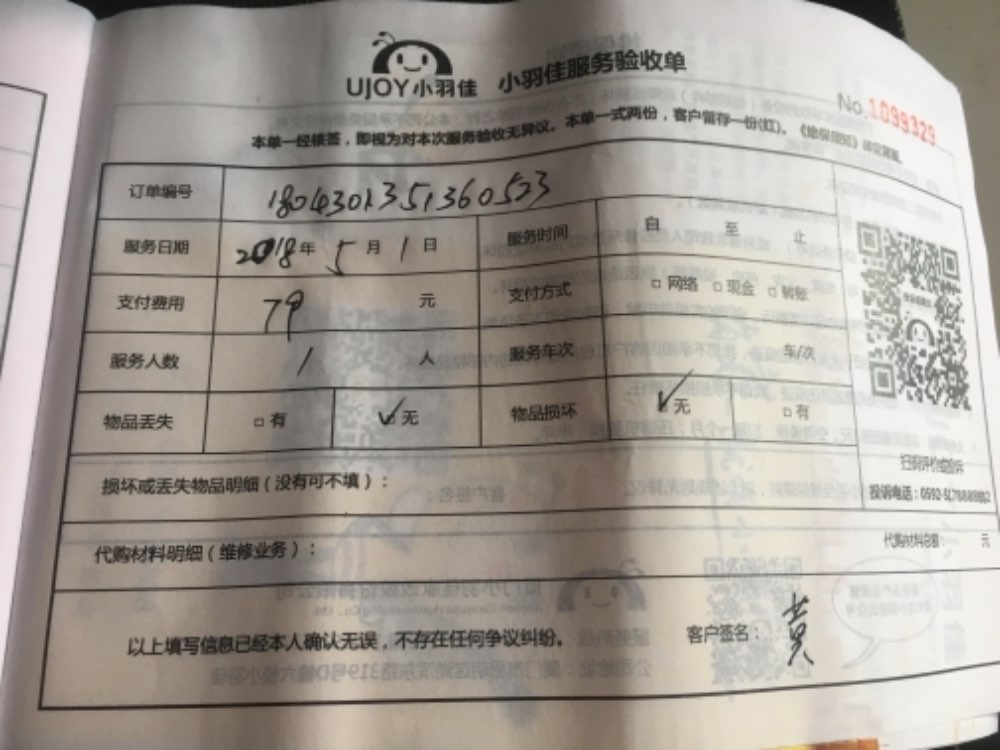 UJOY小羽佳 小羽佳服务验收单
No.1099329
本单一经核签，即视为对本次服务验收无异议。本单一式两份，客户留存一份(红)。《维保须知》详见背面。
订单编号 1804301351360523
服务日期 2018年 5月 1日 服务时间 自 至 止
支付费用 79 元 支付方式 □网络 □现金 □转账
服务人数 1 人 服务车次 车/次
物品丢失 □有 ✓无 物品损坏 ✓无 □有
扫码评价或投诉
损坏或丢失物品明细（没有可不填）：
投诉电话：0592-
代购材料明细（维修业务）： 代购材料总额： 元
以上填写信息已经本人确认无误，不存在任何争议纠纷。 客户签名： 黄